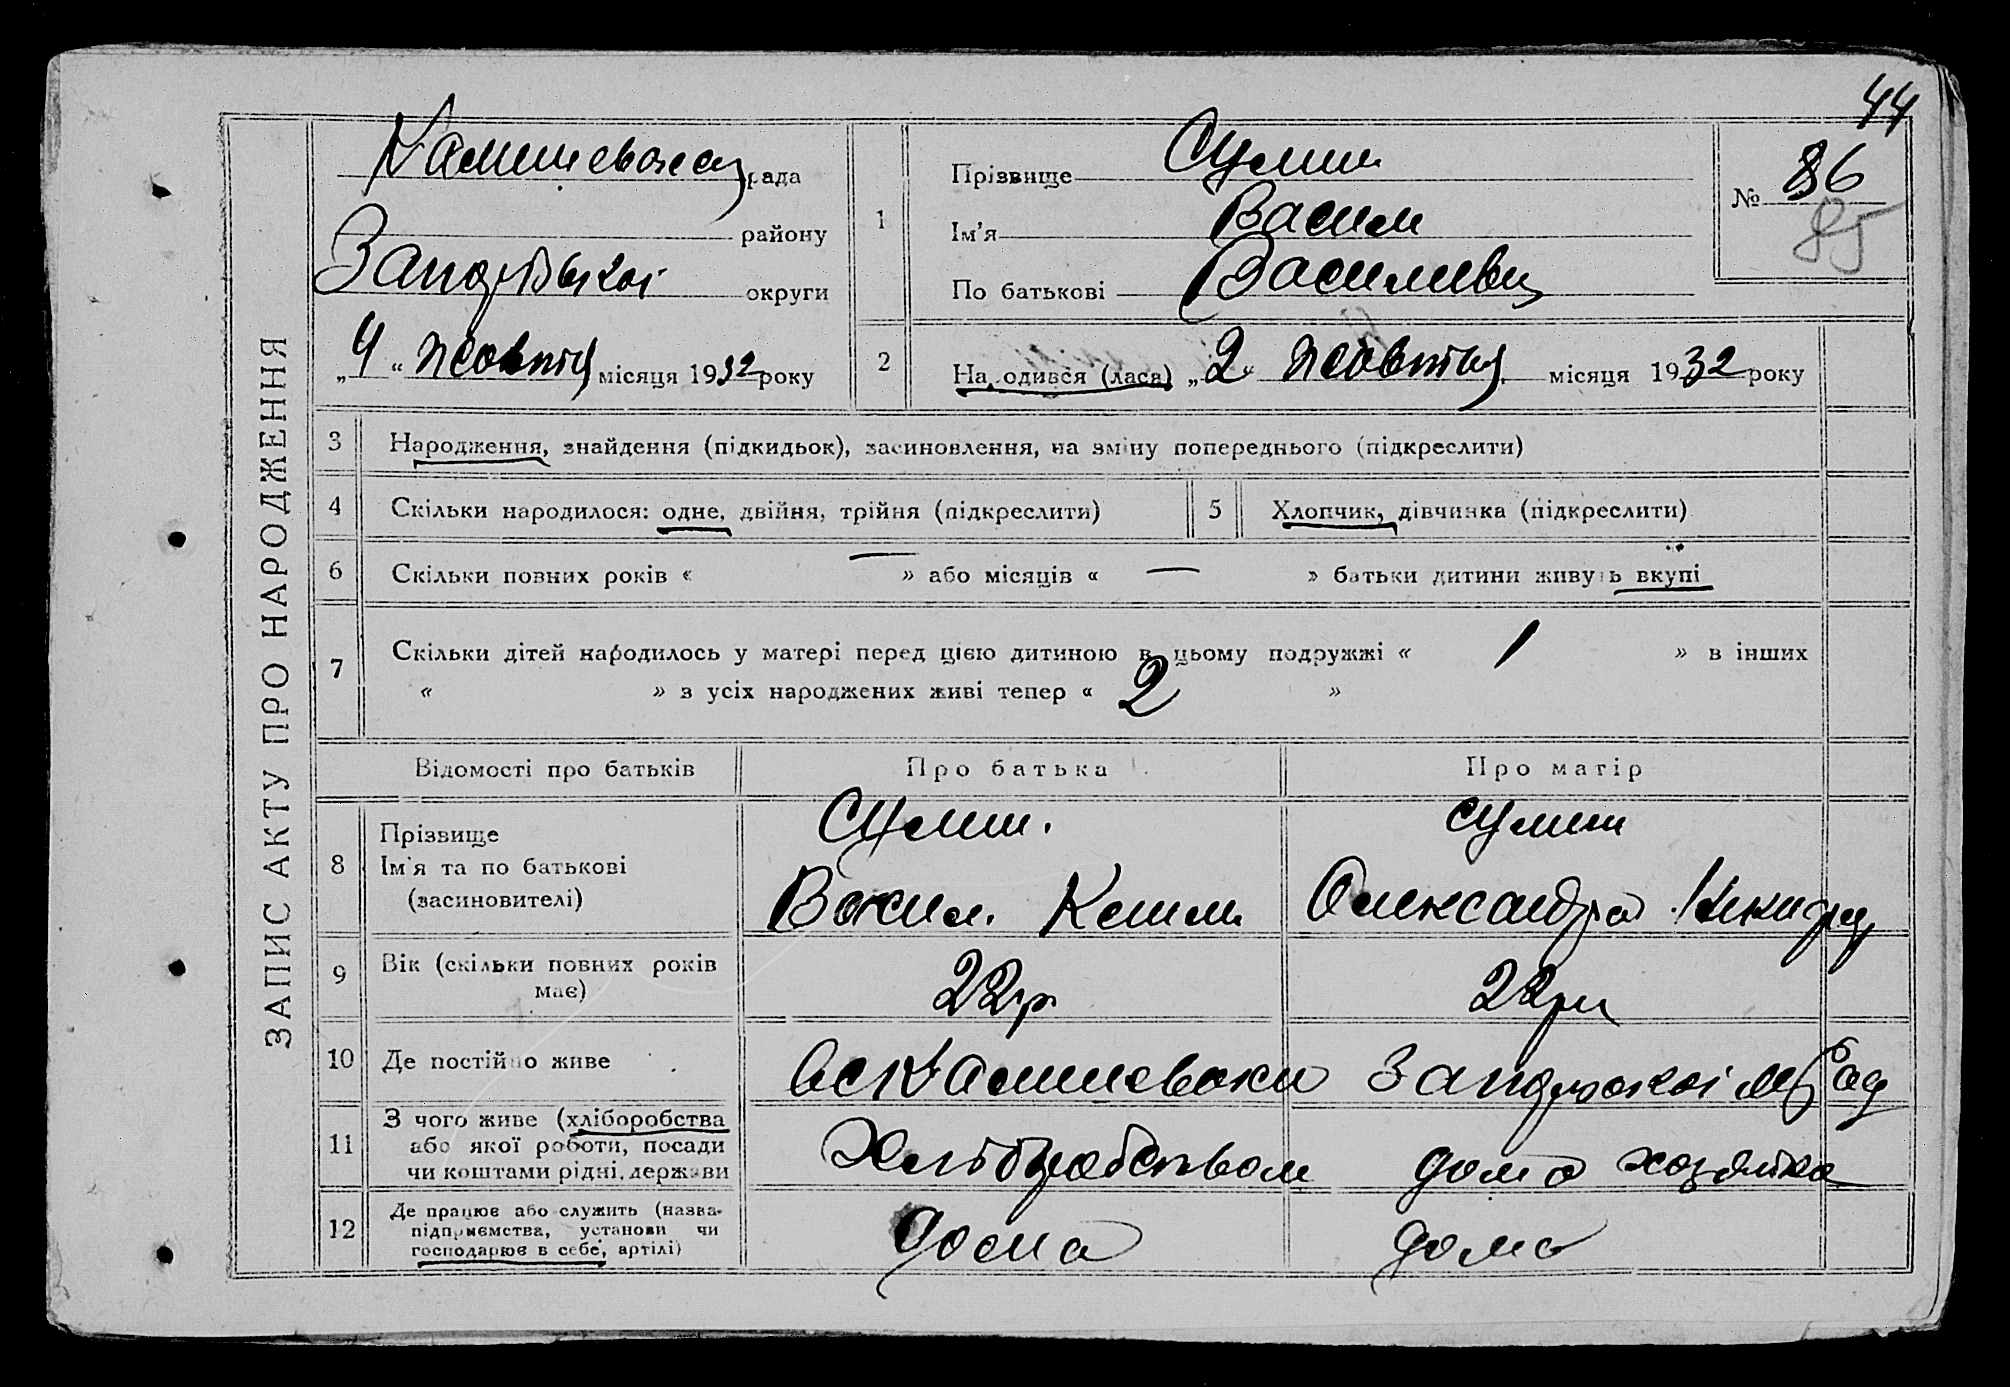 44
ЗАПИС АКТУ ПРО НАРОДЖЕННЯ
рада
району
округи
„4“ жовтня місяця 1932 року
1
Прізвище Сулим
Ім'я Васил
По батькові Василивич
№ 86
85
2
Народився (лася) „2“ жовтня місяця 1932 року
3 Народження, знайдення (підкидьок), засиновлення, на зміну попереднього (підкреслити)
4 Скільки народилося: одне, двійня, трійня (підкреслити)
5 Хлопчик, дівчинка (підкреслити)
6 Скільки повних років « — » або місяців « — » батьки дитини живуть вкупі
7 Скільки дітей народилось у матері перед цією дитиною в цьому подружжі « 1 » в інших
« » з усіх народжених живі тепер « 2 »
Відомості про батьків Про батька Про матір
8 Прізвище
Ім'я та по батькові
(засиновителі)
Сулим. Сулим
Васил. Олександра
9 Вік (скільки повних років
має)
22 р 22 р
10 Де постійно живе
11 З чого живе (хліборобства
або якої роботи, посади
чи коштами рідні, держави
Хліборобством домо хозяйка
12 Де працює або служить (назва
підприємства, установи чи
господарює в себе, артілі)
дома дома